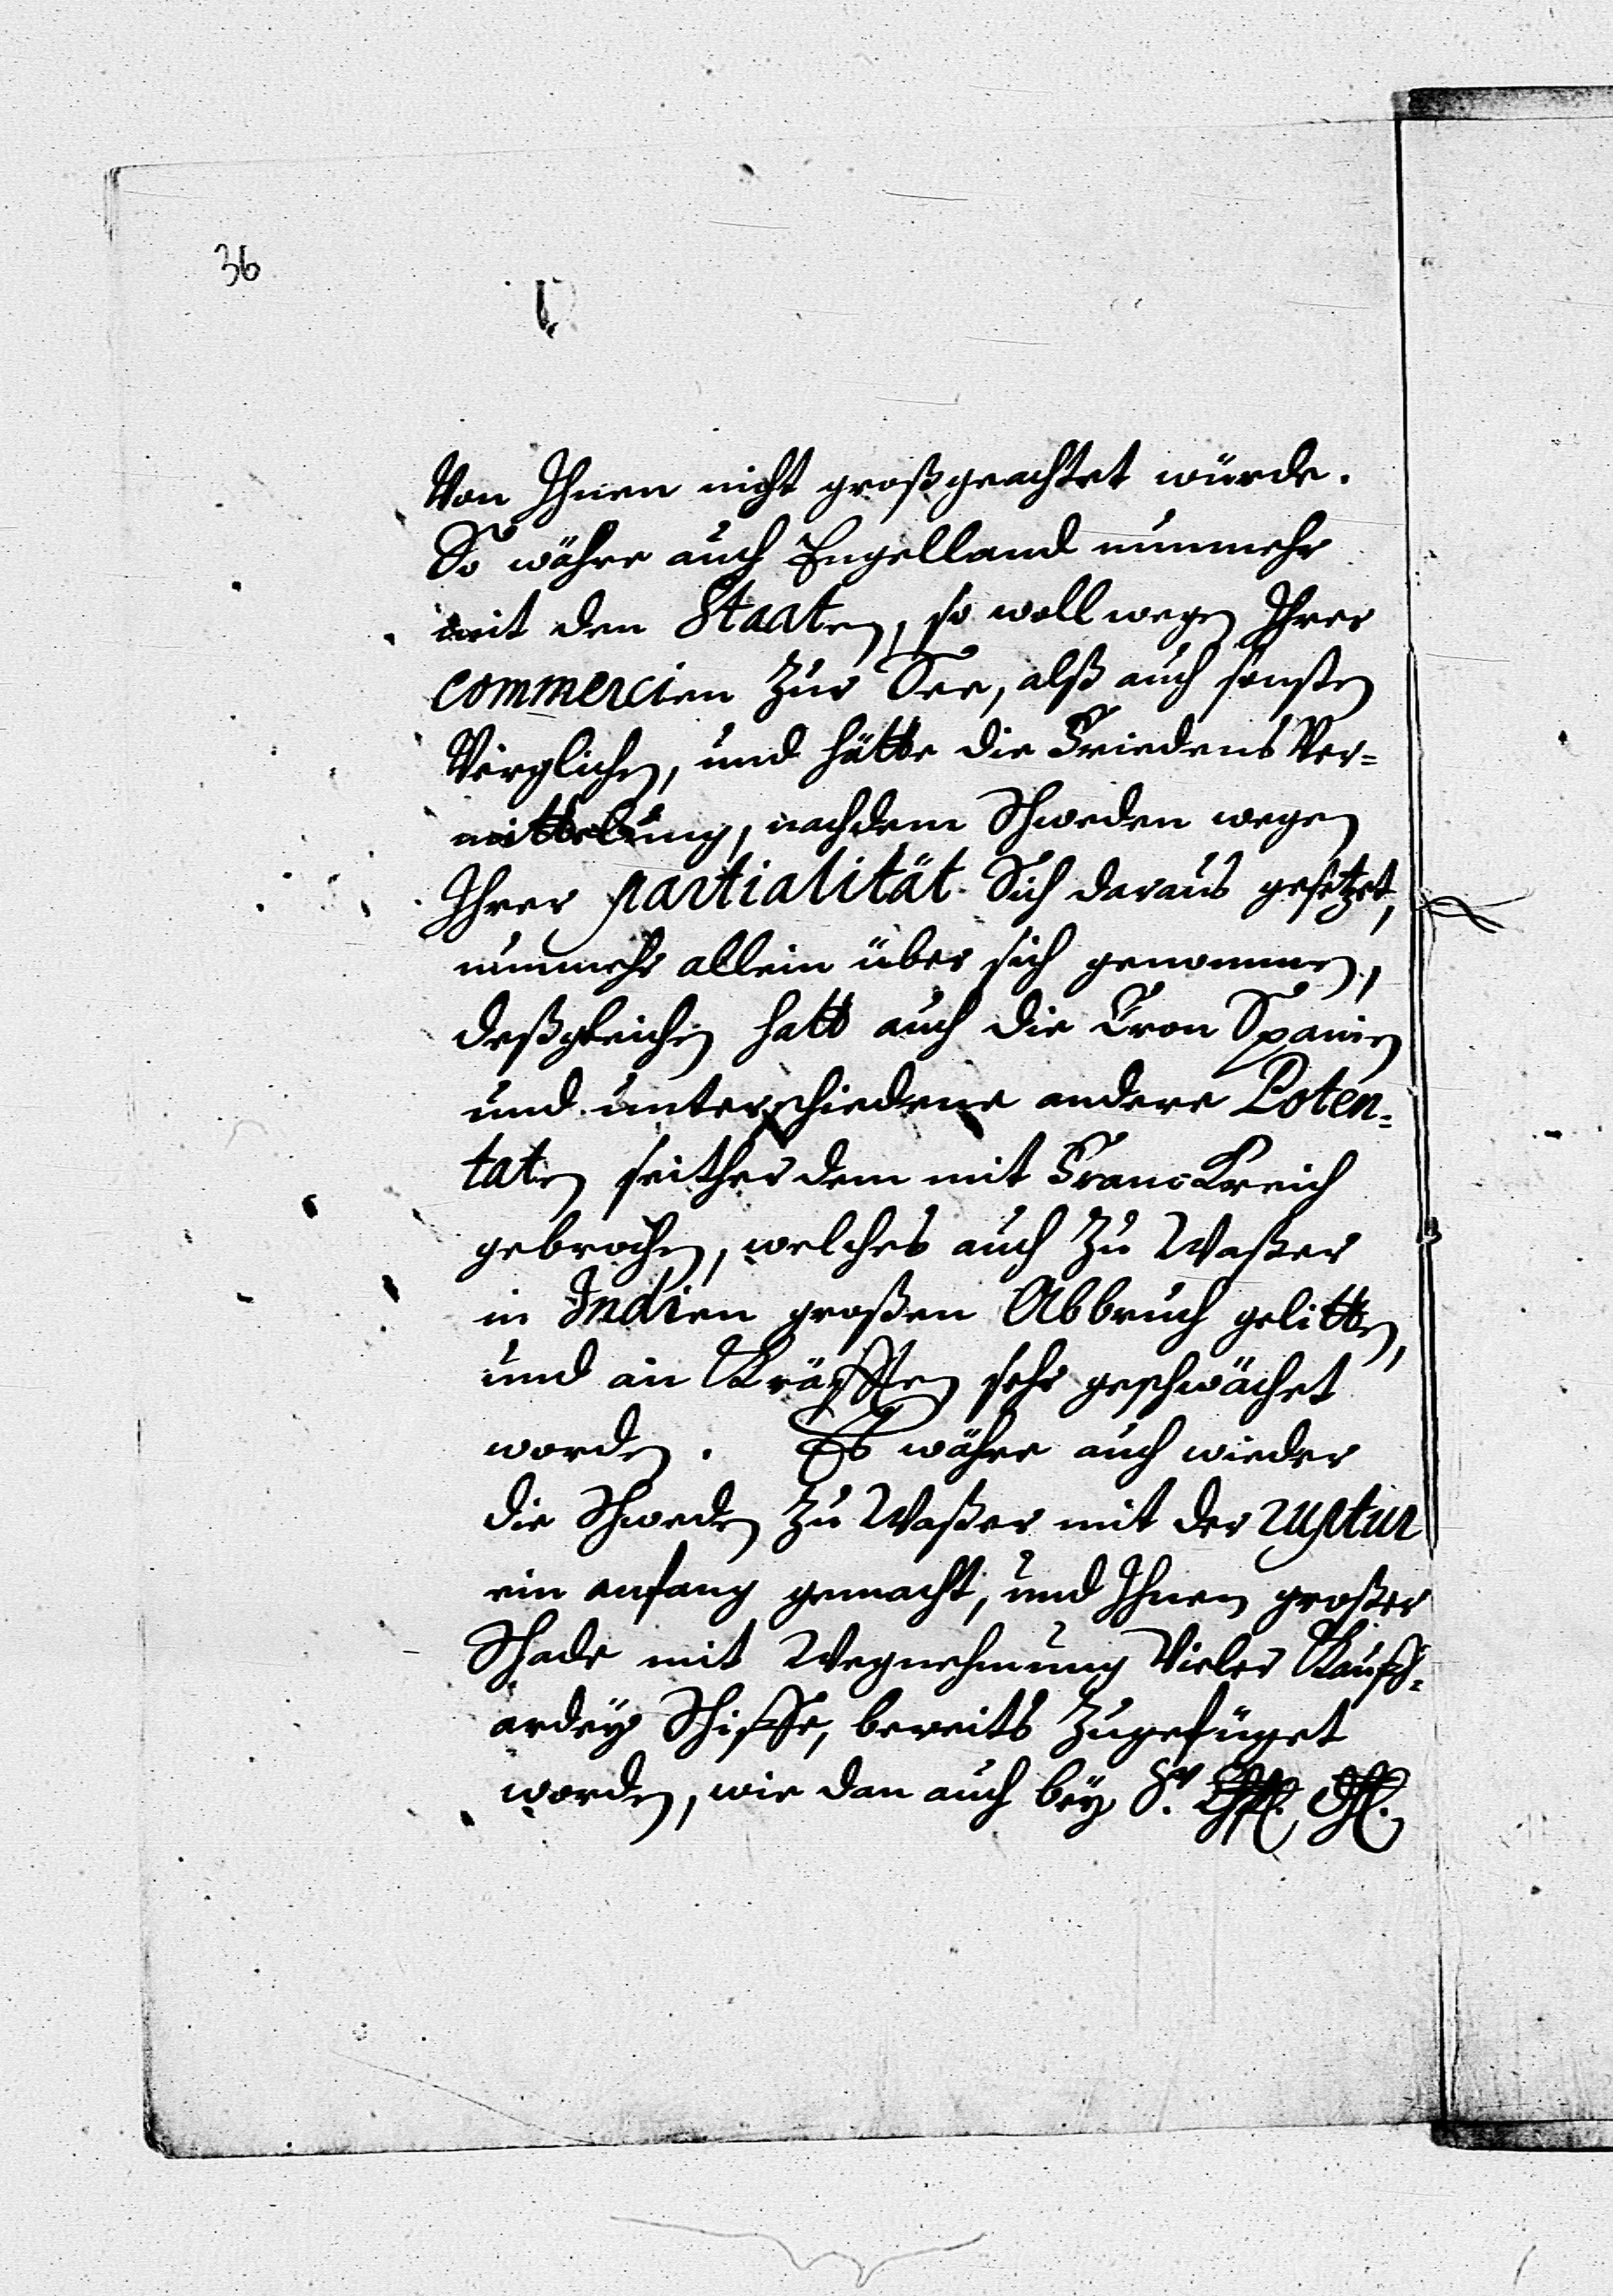 36
Von Ihnen nicht großgeachtet würde.
So währe auch Engelland nunmehr
mit den Staaten, so woll wegen Ihrer
commercien zur See, alß auch sonsten
Verglichen, und hätte die Friedens Ver=
mittelung, nachdem Schweden wegen
Ihrer partialität Sich daraus gesetzet,
nunmehr allein über sich genommen,
deßgleichen hatt auch die Cron Spanien
und unterschiedene andere Poten=
taten seither dem mit Franckreich
gebrochen, welches auch zu Waßer
in Indien großen Abbruch gelitten,
und an Kräfften sehr geschwächet
worden. Es währe auch wieder
die Schweden zu Waßer mit der ruptur
ein anfang gemacht, und Ihnen großer
Schade mit Wegnehmung Vieler Kauff=
ardey Schiffe, bereits zugefüget
worden, wie dan auch bey Sr.